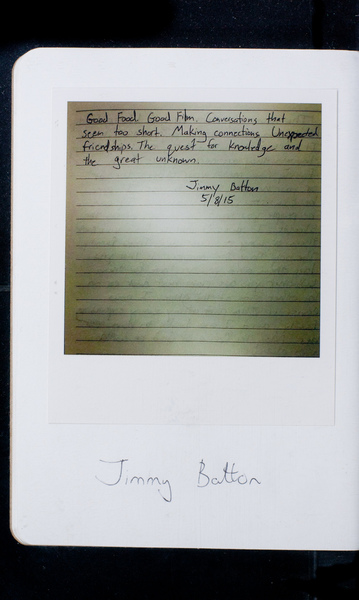 Good Food. Good Film. Conversations that
seem too short. Making connections. Unexpected
friendships. The quest for knowledge and
the great unknown.
Jimmy Batton
5/8/15
Jimmy Batton